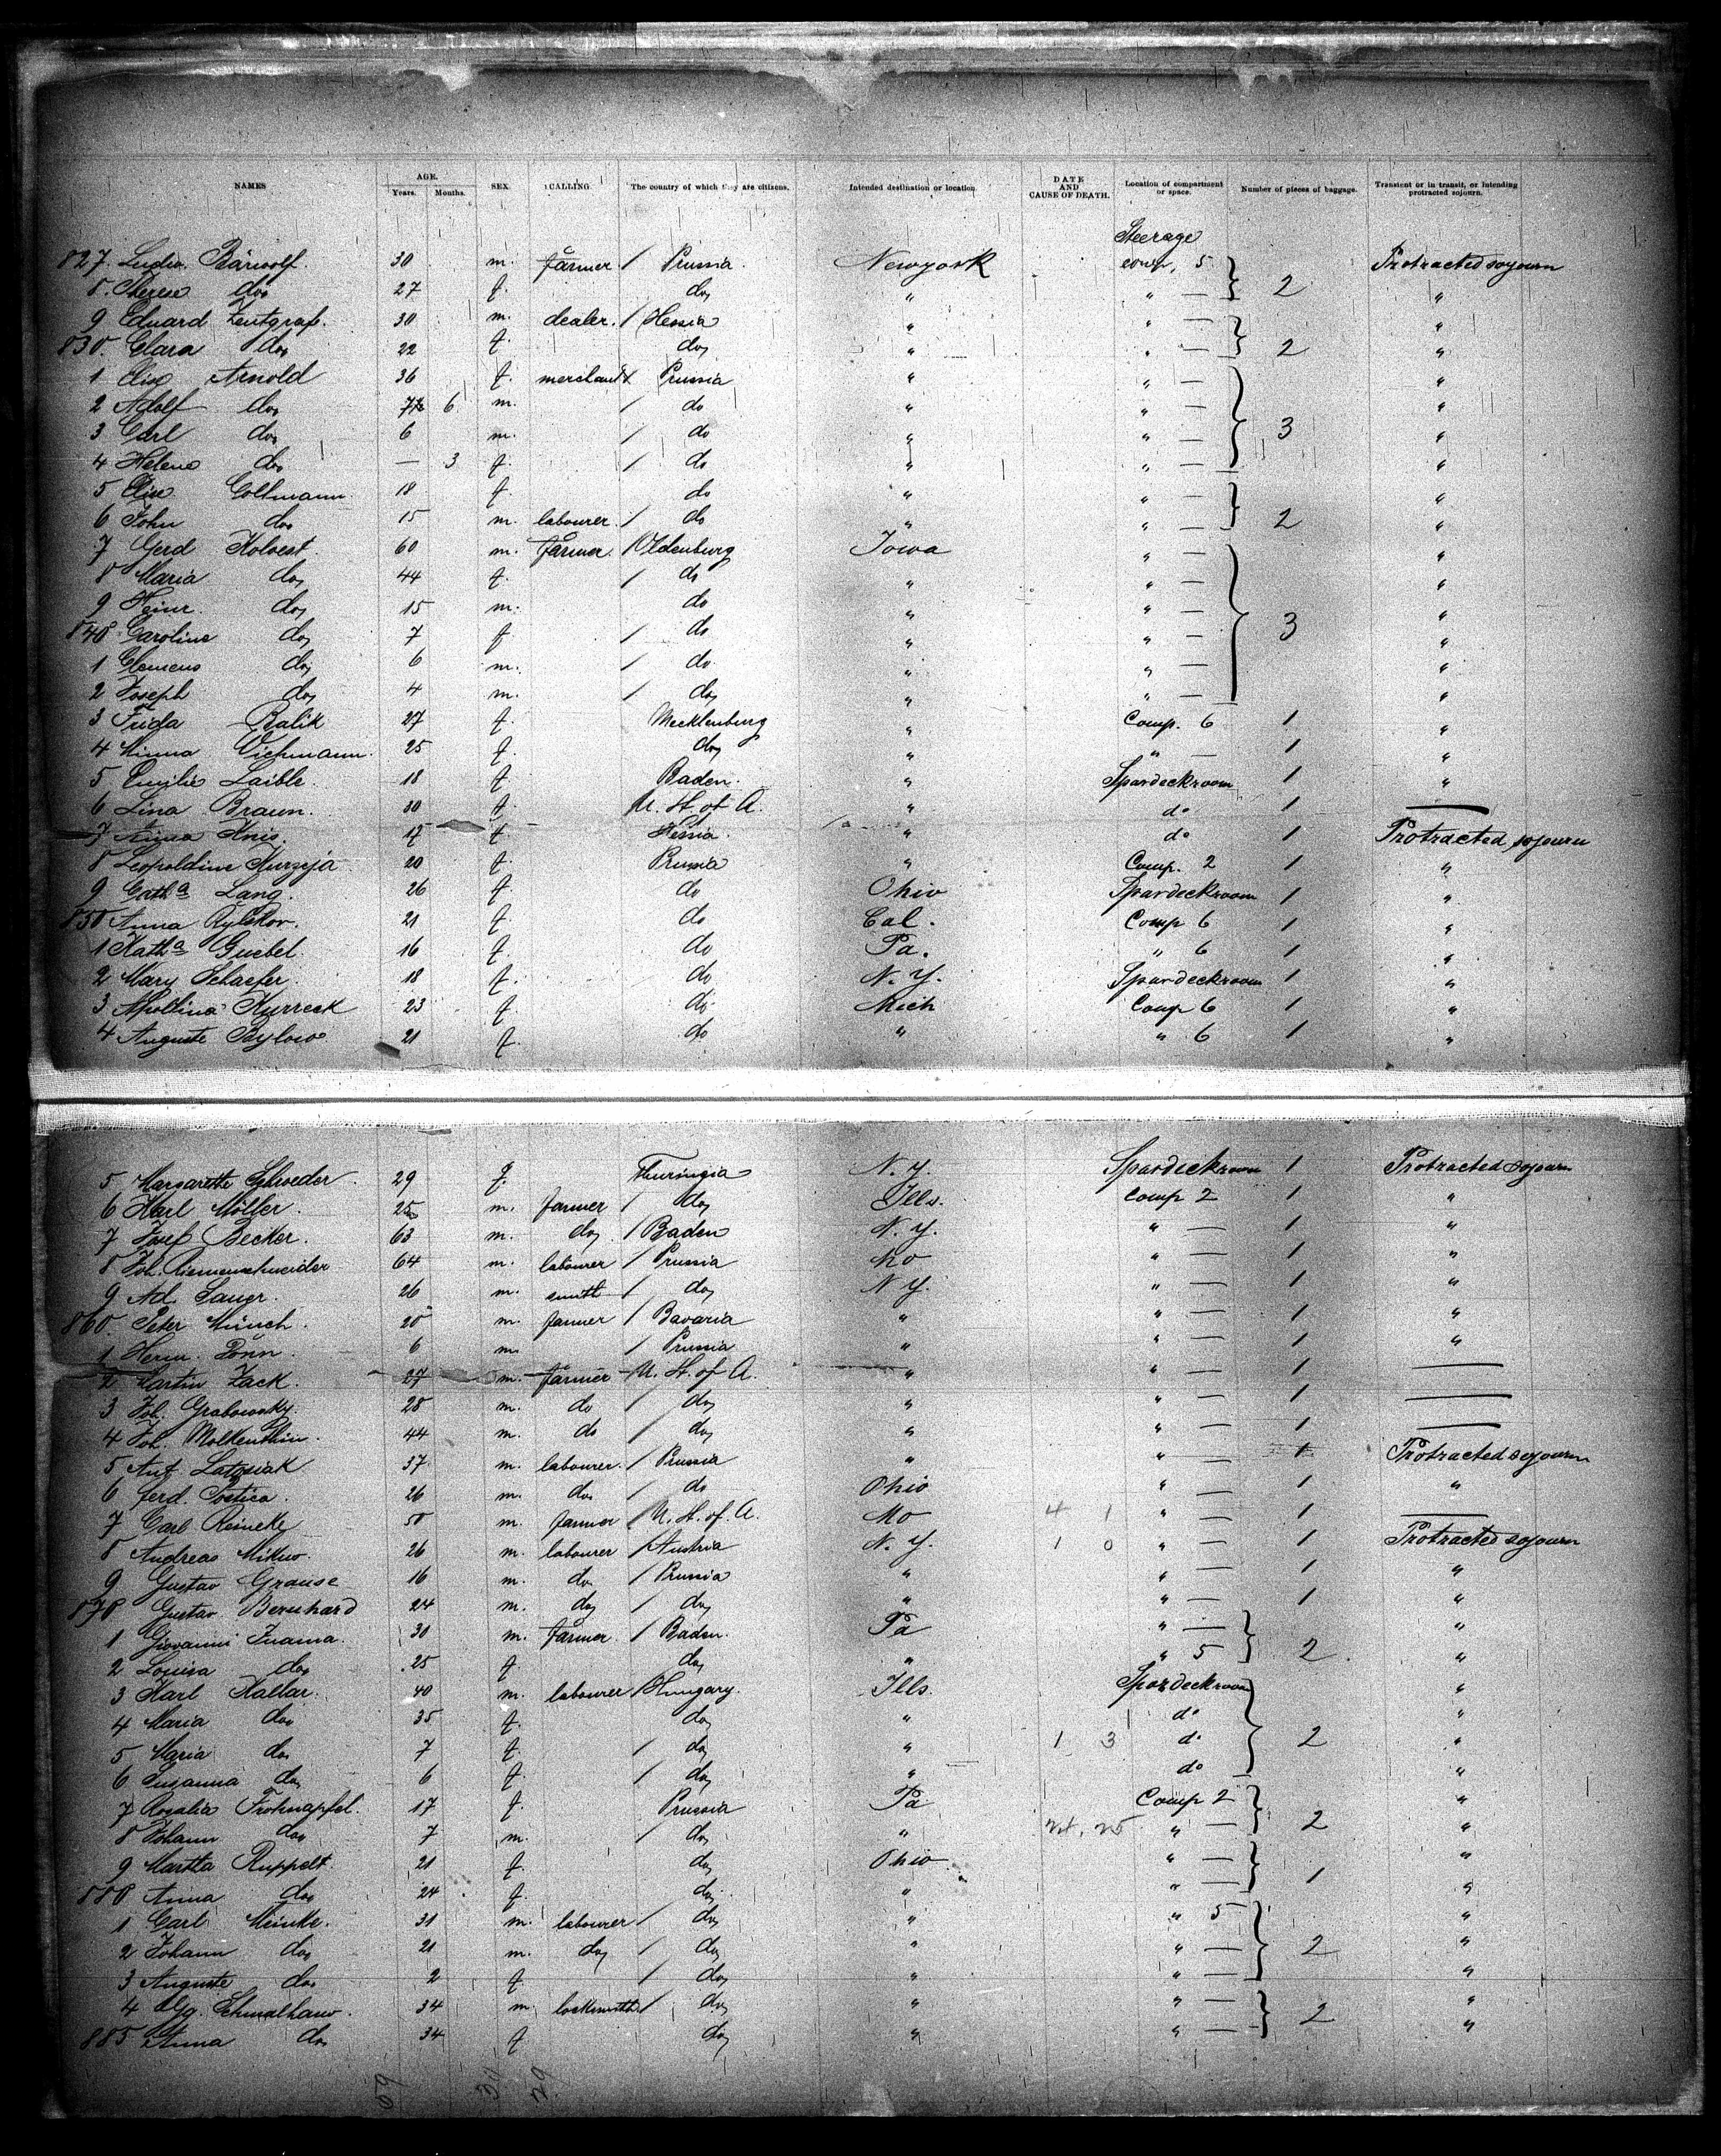 NAMES AGE. Years. Months. SEX CALLING. The country of which they are citizens. Intended destination or location. DATE AND CAUSE OF DEATH. Location of compartment or space. Number of pieces of baggage. Transient or in transit, or intending protracted sojourn.
Steerage
827 Ludw. Bärwolf. 30 m. farmer / Prussia Newyork comp. 5 Protracted sojourn
8. Therese do 27 f. do " " — 2 "
9 Eduard Zentgraf. 30 m. dealer. / Hessia " " — "
830. Clara do 22 f. do " " — 2 "
1 Elise Arnold 36 f. merchant Prussia " " — "
2 Adolf do 6 m. / do " " — "
3 Carl do 6 m. / do " " — 3 "
4 Helene do — 3 f. / do " " — "
5 Elise Goltmann. 18 f. do " " — "
6 John do 15 m. labourer. / do " " — 2 "
7 Gerd Holvest. 60 m. farmer. / Oldenburg Iowa " — "
8 Maria do 44 f. / do " " — "
9 Heinr. do 15 m. do " " — "
840 Caroline do 7 f / do " " — 3 "
1 Clemens do 6 m. / do " " — "
2 Joseph do 4 m. / do " " — "
3 Frida Balik 27 f. Mecklenburg " Comp. 6 1 "
4 Minna Wichmann. 25 f. do " " — 1 "
5 Emilie Laible. 18 f. Baden. " Spardeckroom 1 "
6 Lina Braun. 30 f. U. St. of A. " do 1 —
7 Anna Knis. 17 f Hessia. " do 1 Protracted sojourn
8 Leopoldine Kurzeja 20 f. Prussia " Comp. 2 1 "
9 Catha Lang. 26 f. do Ohio Spardeckroom 1 "
850 Anna Rylskov. 21 f. do Cal. Comp 6 1 "
1 Katha Guebel. 16 f. do Pa. " 6 1 "
2 Mary Schaefer. 18 f. do N. Y. Spardeckroom 1 "
3 Apollina Kurreck 23 f. do Mich Comp 6 1 "
4 Auguste Bylow 21 f. do " " 6 1 "
5 Margarethe Schroeder. 29 f. Thuringia N. Y. Spardeckroom 1 Protracted sojourn
6 Karl Möller. 25 m. farmer / do Ills. Comp 2 1 "
7 Josef Becker. 63 m. do / Baden N. Y. " — 1 "
8 Joh. Riemenschneider 64 m. labourer / Prussia Mo " — 1 "
9 Ad. Langr. 26 m. smith / do N Y. " — 1 "
860. Peter Münch. 20 m. farmer / Bavaria " " — 1 "
1 Herm. Dönn. 6 m. / Prussia " " — 1 "
2 Martin Zack. 27 m. farmer U. St. of A. " " — 1 —
3 Joh. Grabowsky. 28 m. do / do " " — 1 —
4 Joh. Molkenthin. 44 m. do / do " " — 1 —
5 Ant. Latosiak 37 m. labourer. / Prussia " " — 1 Protracted sojourn
6 Ferd. Postica. 26 m. do / do Ohio " — 1 "
7 Carl Reineke 50 m. farmer / U. St. of. A. Mo 4 1 " — 1 —
8 Andreas Mikuv. 26 m. labourer / Austria N. Y. 1 0 " — 1 Protracted sojourn
9 Gustav Grause 16 m. do / Prussia " " — 1 "
870 Gustav Bernhard 24 m. do / do " " — 1 "
1 Giovanni Inama. 30 m. farmer. / Baden. Pa " — "
2 Louisa do 25 f. do " " 5 2 "
3 Karl Kallar. 40 m. labourer / Hungary. Ills. Spardeckroom "
4 Maria do 35 f. do " do "
5 Maria do 7 f. / do " 1 3 do 2 "
6 Susanna do 6 f. / do " do "
7 Rosalia Frohnapfel. 17 f. Prussia Pa Comp 2 "
8 Johann do 7 m. / do " 24. 25 " — 2 "
9 Martha Ruppelt. 21 f. do Ohio " — "
880 Anna do 24 f. do " " — 1 "
1 Carl Meinke. 31 m. labourer / do " " 5 "
2 Johann do 21 m. do / do " " — 2 "
3 Auguste do 2 f. / do " " — "
4 Gg. Schmalhaus. 34 m. locksmith / do " " — "
885 Anna do 34 f do " " — 2 "